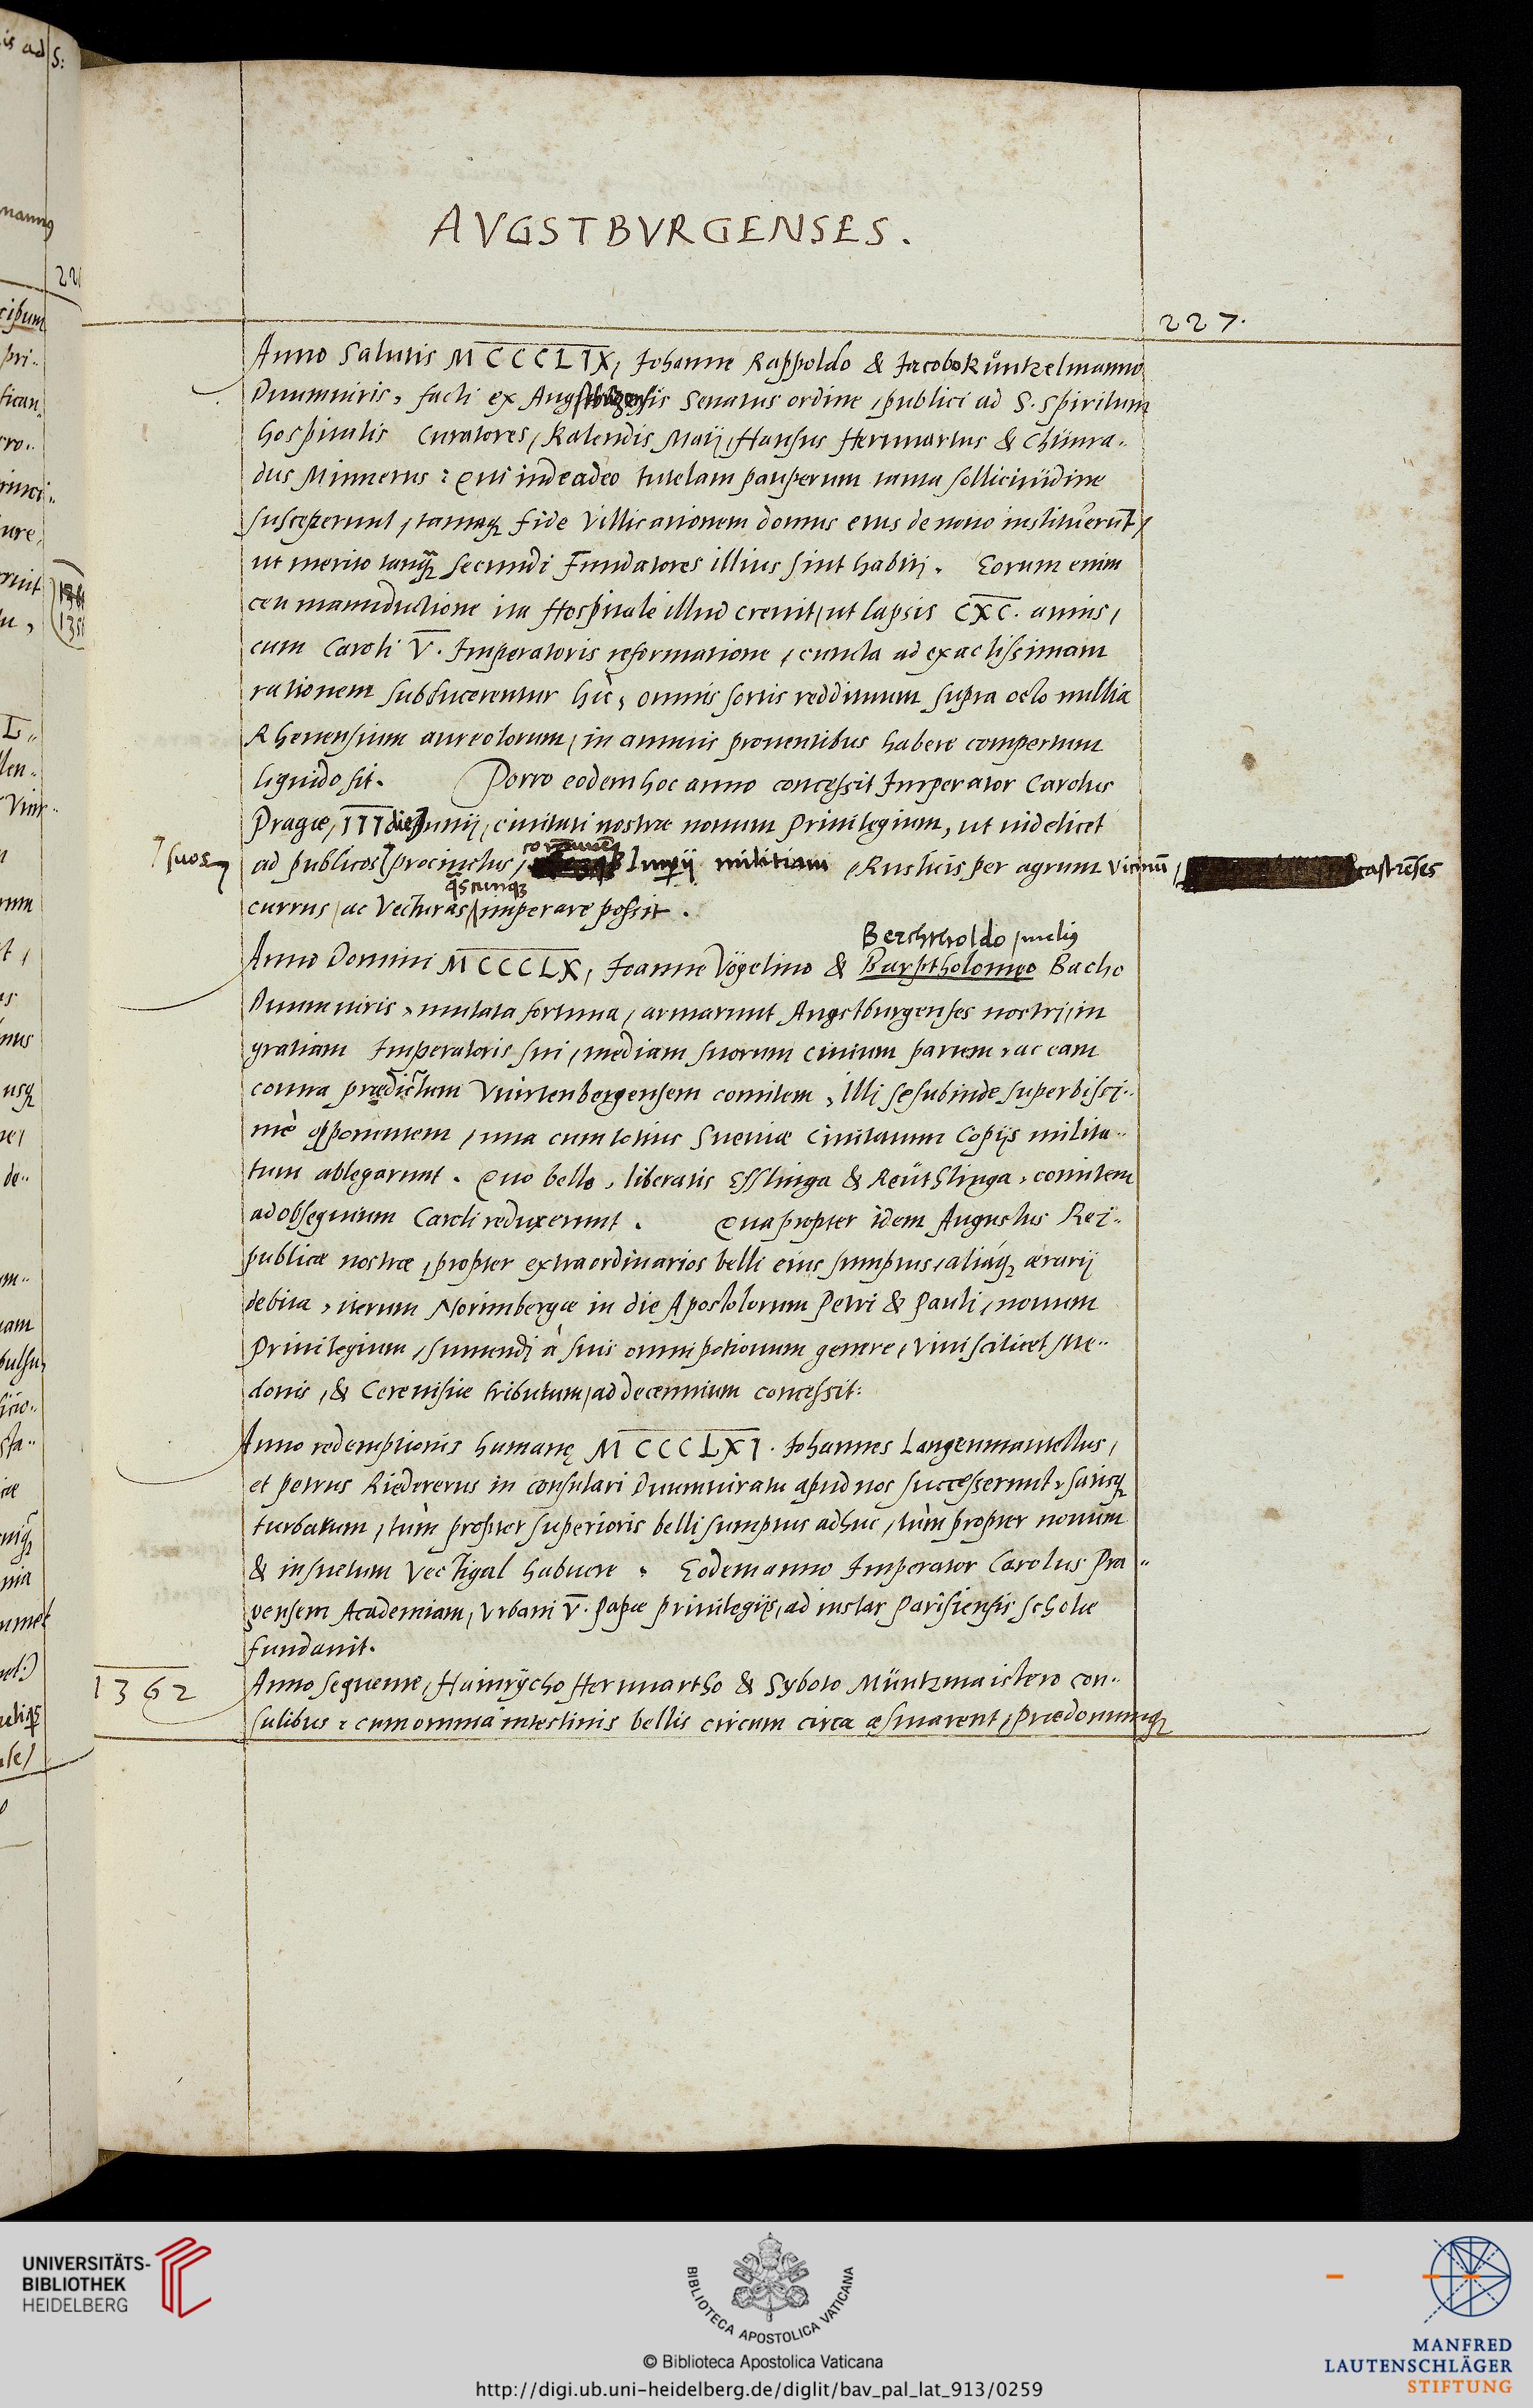 AVGSTBVRGENSES.
227.
Anno Salutis MCCCLIX, Iohanne Rappoldo & Iacobo Kůntzelmanno
Duumuiris, facti ex Augstburgensis Senatus ordine, publici ad S. Spiritum
hospitalis Curatores, Kalendis Maij, Hansus Herwuartus & Chůnra..
dus Minnerus: Qui inde adeo tutelam pauperum tanta sollicitudine
susceperunt, tantaqꝫ fide Villicationem domus eius de nouo instituerūt,
ut merito tanqꝫ secundi Fundatores illius sint habiti. Eorum enim
ceu manuductione ita Hospitale illud creuit, ut lapsis CXC. annis,
cum Caroli V. Imperatoris reformatione, cuncta ad exactissimam
rationem subducerentur hic, omnis sortis reddituum supra octo millia
Rhenensium aureolorum, in annuis prouentibus habere compertum
liquido sit. Porro eodem hoc anno concessit Imperator Carolus
Pragæ, III die Iunij, ciuitati nostræ nouum Priuilegium, ut uidelicet
suos
ad publicos procinctus, Impij militiam, Rusticis per agrum vicinū, castrēses
q̄scunqꝫ
currus, ac Vecturas imperare possit.
Berchtholdo, melius
Anno Domini MCCCLX, Ioanne Vögelino & Barptholomęo Bacho
Duumuiris, mutata fortuna, armarunt Augstburgenses nostri, in
gratiam Imperatoris sui, mediam suorum ciuium partem, ac eam
contra prædictum Vuirtenbergensem comitem, illi se subinde superbissi..
mè opponentem, una cum totius Sueuiæ Ciuitatum Copijs milita..
tum ablegarunt. Quo bello, liberatis Esslinga & Reütslinga, comitem
ad obsequium Caroli reduxerunt. Quapropter idem Augustus Rei..
publicæ nostræ, propter extraordinarios belli eius sumptus, aliaqꝫ ærarij
debita, iterum Norimbergæ in die Apostolorum Petri & Pauli, nouum
Priuilegium, sumendi à suis omni potionum genere, Vini scilicet Me..
donis, & Cereuisiæ tributum, ad decennium concessit:
Anno redemptionis humanę MCCCLXI. Iohannes Langenmantellus,
et Petrus Riedererus in consulari Duumuiratu apud nos successerunt, satisqꝫ
turbatum, tùm propter superioris belli sumptus adhuc, tùm propter nouum
& insuetum Vectigal habuere. Eodem anno Imperator Carolus Pra..
gensem Academiam, Vrbani V. Papæ priuilegijs, ad instar Parisiensis scholæ
fundauit.
1362
Anno sequente, Hainrÿcho Herwuartho & Syboto Müntzmaistero con..
sulibus: cum omnia intestinis bellis circum circa æstuarent, Prædonumqꝫ
UNIVERSITÄTS-
BIBLIOTHEK
HEIDELBERG
BIBLIOTECA APOSTOLICA VATICANA
© Biblioteca Apostolica Vaticana
http://digi.ub.uni-heidelberg.de/diglit/bav_pal_lat_913/0259
MANFRED
LAUTENSCHLÄGER
STIFTUNG